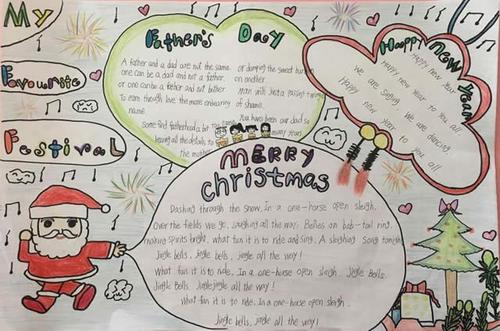 My
Favourite
Festival
Father's Day
A father and a dad are not the same.
one can be a dad and not a father.
or one can be a father and not
To earn though love the more
name.
Some find fatherhood a bit
the
or dumping the sweet
on another
of shame.
You have been our dad so
many years
MERRY
christmas
Dashing through the snow. In a one-horse open sleigh.
Over the fields we go, laughing all the way. Bells on bob-tail ring,
making spirits bright, what fun it is to ride and sing. A sleighing song tonight
Jingle bells, jingle bells, jingle all the way!
What fun it is to ride. In a one-horse open sleigh. Jingle Bells.
Jingle Bells, Jingle all the way!
What fun it is to ride. In a one-horse open sleigh.
Jingle bells, jingle all the way!
Happy new year
Happy new year Happy new year
Happy new year to you all
We are singing We are dancing
Happy new year to you all